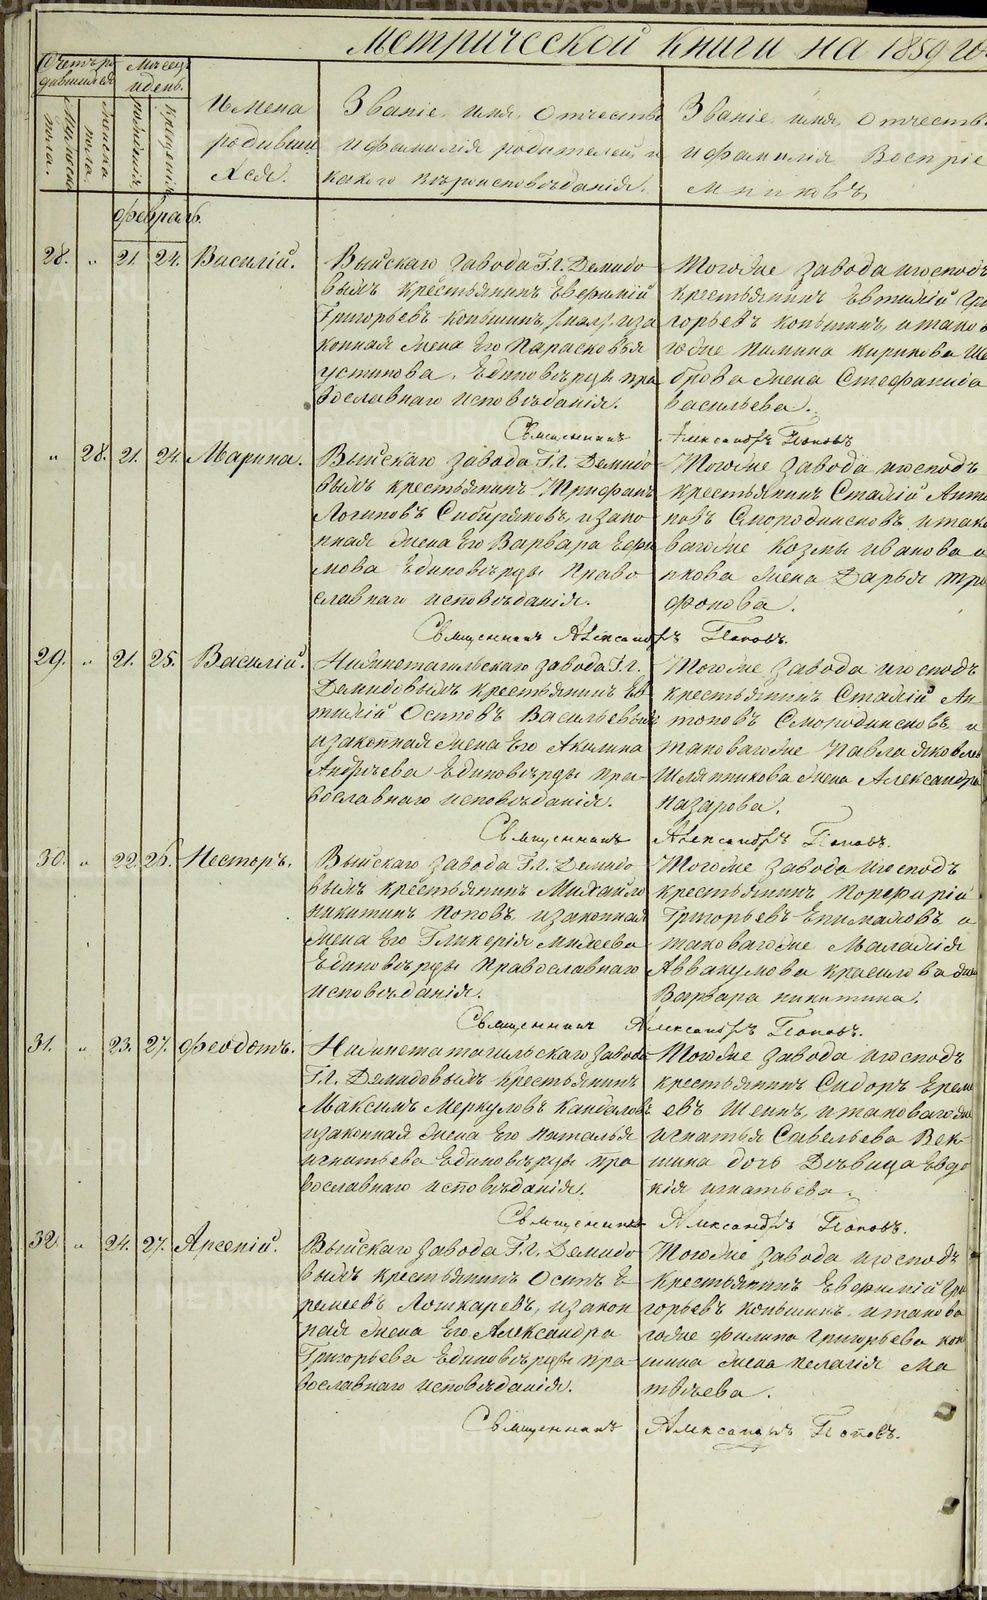 Метрической книги на 1859 го
Счетъ ро
дившихся
Мѣсяцъ
и день.
Мужеска
пола.
Женска
пола.
рожденія
крещенія
Имена
родивши
хся.
Званіе, имя, отчество
и фамилія родителей, и
какого вѣроисповѣданія.
Званіе, имя, отчеств
и фамилія Воспріе
мниковъ
Февраль.
28. „ 21. 24. Василій.
Выйскаго завода Г.г. Демидо
выхъ крестьянинъ Евфимій
Григорьевъ Копьшинъ, и за
конная жена Его Парасковья
Устинова, Единовѣрцы пра
вославнаго исповѣданія.
Тогоже завода и господъ
крестьянинъ Евтихій Гри
горьевъ Копьшинъ, и таково
гоже Пимина Кирикова Ше
брова жена Стефанида
Васильева.
Священникъ Александръ Поповъ
„ 28. 21. 24. Марина.
Выйскаго завода Г.г. Демидо
выхъ крестьянинъ Трифанъ
Логиновъ Сибиряковъ, и зако
нная жена Его Варвара Ефи
мова Единовѣрцы Право
славнаго исповѣданія.
Тогоже завода и господъ
крестьянинъ Стахій Анто
новъ Смородинсковъ и тако
вагоже Козмы Иванова
пкова жена Дарья Три
фонова.
Священникъ Александръ Поповъ.
29. „ 21. 25. Василій.
Нижнетагильскаго завода Г.г.
Демидовыхъ крестьянинъ Ев
тихій Осиповъ Васильевыхъ
и законная жена Его Акилина
Андрѣева Единовѣрцы Пра-
вославнаго исповѣданія.
Тогоже завода и господъ
крестьянинъ Стахій Ан-
тоновъ Смородинсковъ и
таковагоже Павла Яковлев
Шляпникова жена Александра
Назарова.
Священникъ Александръ Поповъ.
30. „ 22. 26. Несторъ.
Выйскаго завода Г.г. Демидо
выхъ крестьянинъ Михайло
Никитинъ Поповъ и законная
жена Его Гликерія Михеева
Единовѣрцы Православнаго
исповѣданія.
Тогоже завода и господъ
крестьянинъ Порфирій
Григорьевъ Епимаховъ и
таковагоже Малахія
Аввакумова Красилова
Варвара Никитина.
Священникъ Александръ Поповъ.
31. „ 23. 27. Феодотъ.
Нижнетагильскаго завода
Г.г. Демидовыхъ крестьянинъ
Максимъ Меркуловъ Кандаловъ
и законная жена Его Наталья
Игнатьева Единовѣрцы пра
вославнаго исповѣданія.
Тогоже завода и господъ
крестьянинъ Сидоръ Ереме
евъ Шеинъ, и таковагоже
Игнатья Савельева Век-
шина дочь Дѣвица Евдо
кія Игнатьева.
Священникъ Александръ Поповъ.
32. „ 24. 27. Арсеній.
Выйскаго завода Г.г. Демидо
выхъ крестьянинъ Осипъ Е
ремеевъ Лошкаревъ, и закон
ная жена Его Александра
Григорьева Единовѣрцы пра
вославнаго исповѣданія.
Тогоже завода и господъ
крестьянинъ Евфимій Гри
горьевъ Копьшинъ и таково
гоже Филипа Григорьева Коп
шина жена Пелагія Ма
твѣева.
Священникъ Александръ Поповъ.
METRIKI.GASO-URAL.RU